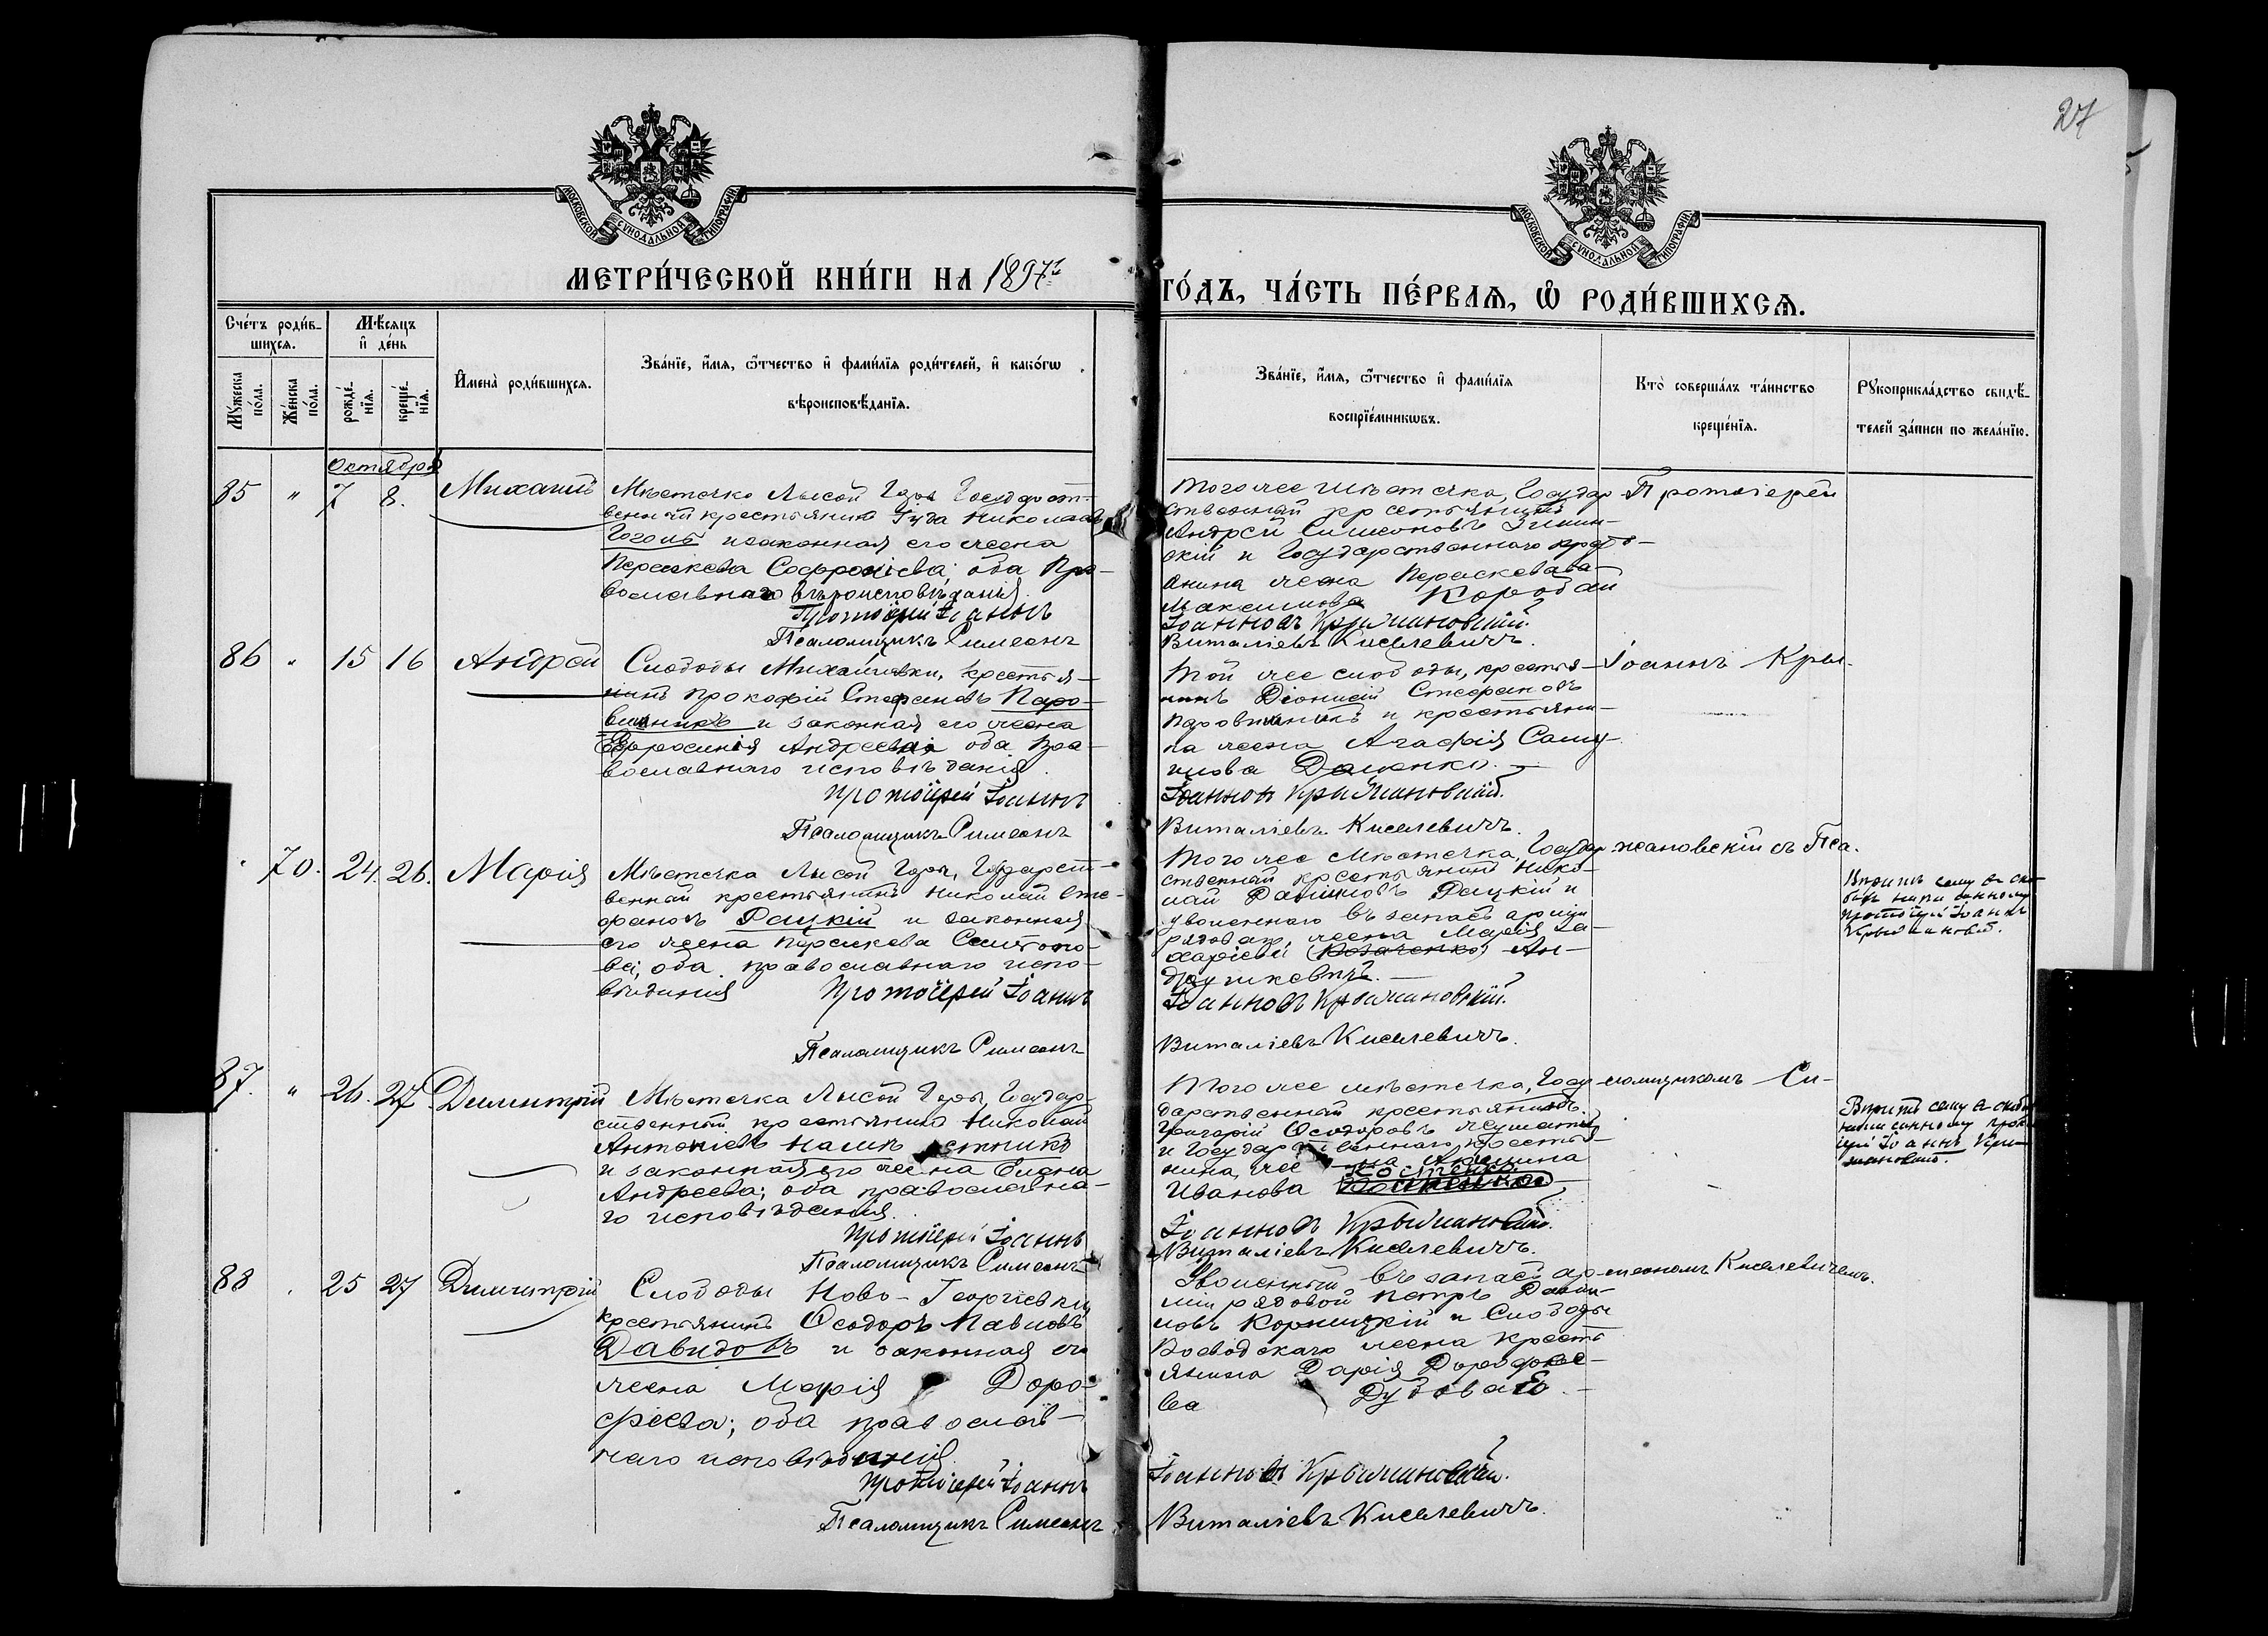 27
МОСКОВСКОЙ СѴНОДАЛЬНОЙ ТИПОГРАФІИ
МОСКОВСКОЙ СѴНОДАЛЬНОЙ ТИПОГРАФІИ
МЕТРИ́ЧЕСКОЙ КНИ́ГИ НА 1897й
ГО́ДЪ, ЧА́СТЬ ПЕ́РВАѦ, Ѡ҆ РОДИ́ВШИХСѦ.
Сче́тъ роди́в-
шихсѧ.
Мꙋ́жеска
по́ла.
Же́нска
по́ла.
Мѣ́сѧцъ
и҆ де́нь
рожде́-
нїѧ.
креще́-
нїѧ.
И҆мена̀ роди́вшихсѧ.
Зва́нїе, и҆́мѧ, ѻ҆́тчество и҆ фамі́лїѧ роди́телей, и҆ како́гѡ
вѣроисповѣ́данїѧ.
Зва́нїе, и҆́мѧ, ѻ҆́тчество и҆ фамі́лїѧ
воспрїе́мникѡвъ.
Кто̀ соверша́лъ та́инство
креще́нїѧ.
Рꙋкоприкла́дство свидѣ́-
телей за́писи по жела́нїю.
Октября
85 " 7 8. Михаилъ
Мѣстечка Лысой Горы Государст-
венный крестьянинъ Іуда Николаевъ
Гоголь и законная его жена
Параскева Софроніева; оба Пра-
вославнаго вѣроисповѣданія.
Протоіерей Іоаннъ
Псаломщикъ Симеонъ
Того же мѣстечка, Государ-
ственный крестьянинъ
Андрей Симеоновъ
скій и Государственнаго кресть-
янина жена Параскева
Максимова Коробай
Іоанновъ Крыжановскій.
Виталіевъ Киселевичъ.
Протоіерей
86 " 15 16 Андрей
Слободы Михайловки, крестья-
нинъ Прокофій Стефановъ Паро-
и законная его жена
Евфросинія Андреева; оба пра-
вославнаго исповѣданія.
Протоіерей Іоаннъ
Псаломщикъ Симеонъ
Той же слободы, крестья-
нинъ Діонисій Стефановъ
и крестьяни-
на жена Агафія Саму-
илова Доценко.
Іоанновъ Крыжановскій.
Виталіевъ Киселевичъ.
Іоаннъ Кры-
" 70. 24. 26. Марія
Мѣстечка Лысой Горы, Государст-
венный крестьянинъ Николай Сте-
фановъ Рацкій и законная
его жена Параскева
ва; оба православнаго испо-
вѣданія
Протоіерей Іоаннъ
Псаломщикъ Симеонъ
Того же Мѣстечка, Государ-
ственный крестьянинъ Нико-
лай Рацкій и
уволеннаго въ запасъ арміи
рядоваго жена Марія За-
харіева (Козаченко) Ан-
Іоанновъ Крыжановскій.
Виталіевъ Киселевичъ.
жановскій съ Пса-
протоіерей Іоаннъ
Крыжановскій.
87. " 26. 27. Димитрій
Мѣстечка Лысой Горы, Государ-
ственный крестьянинъ Николай
Антоніевъ
и законная его жена Елена
Андреева; оба православна-
го исповѣданія.
Протоіерей Іоаннъ
Псаломщикъ Симеонъ
Того же мѣстечка, Госу-
дарственный крестьянинъ
Григорій Ѳеодоровъ
и Государственнаго крестья-
нина жена Акилина
Костенко
Иванова
Іоанновъ Крыжановскій.
Виталіевъ Киселевичъ.
ломщикомъ Си-
88 " 25 27 Димитрій
Слободы Ново-Георгіевки,
крестьянинъ Ѳеодоръ Павловъ
Давидовъ и законная его
жена Марія Доро-
феева; оба православ-
наго исповѣданія.
Протоіерей Іоаннъ
Псаломщикъ Симеонъ
Уволенный въ запасъ ар-
міи рядовой Петръ
новъ Корницкій и Слободы
Воеводскаго жена кресть-
янина Дарія Дорофее-
ва
Іоанновъ Крыжановскій.
Виталіевъ Киселевичъ.
меономъ Киселевичемъ.